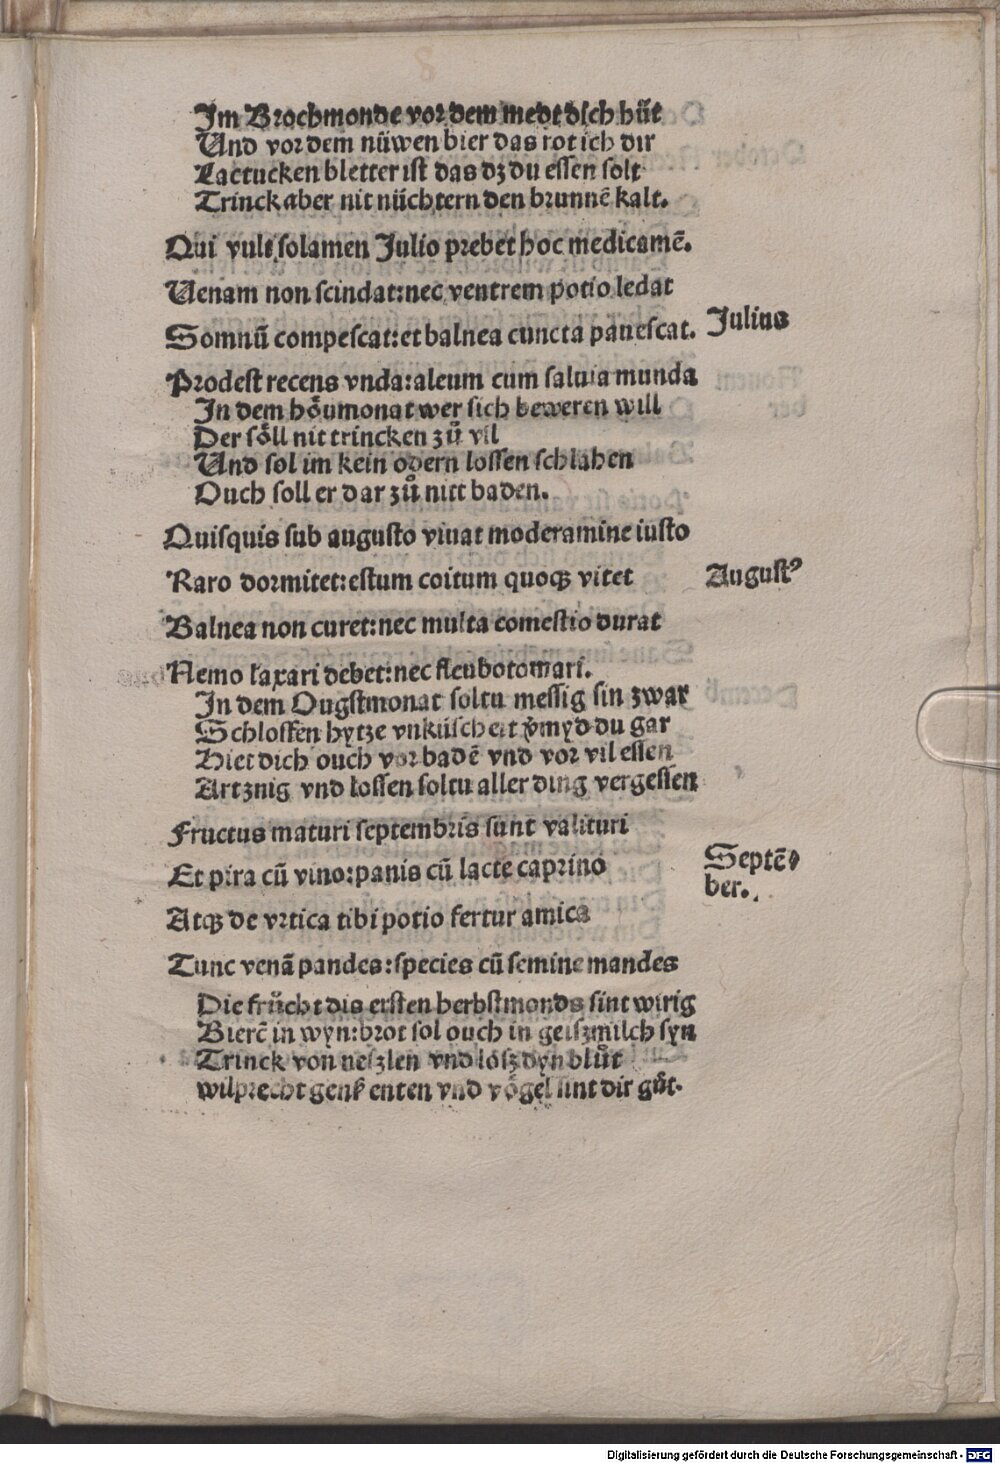 Im Brochmonde vor dem medt dich huͤt
Und vor dem nüwen bier das rot ich dir
Lactucken bletter ist das dz du essen solt
Trinck aber nit nüchtern den brunnē kalt.
Qui vult solamen Julio prebet hoc medicamē.
Uenam non scindat: nec ventrem potio ledat
Somnū compescat: et balnea cuncta pauescat.
Julius
Prodest recens vnda: aleum cum saluia munda
In dem hoͤumonat wer sich beweren will
Der soͤll nit trincken zuͦ vil
Und sol im kein odern lossen schlahen
Ouch soll er dar zuͦ nitt baden.
Quisquis sub augusto viuat moderamine iusto
Raro dormitet: estum coitum quoqꝫ vitet
Augustꝰ
Balnea non curet: nec multa comestio durat
Nemo laxari debet: nec fleubotomari.
In dem Ougstmonat soltu messig sin zwar
Schloffen hytze vnküscheit v̄myd du gar
Hiet dich ouch vor badē vnd vor vil essen
Artznig vnd lossen soltu aller ding vergessen
Fructus maturi septembris sunt valituri
Et pira cū vino: panis cū lacte caprino
Septē⸗
ber.
Atqꝫ de vrtica tibi potio fertur amica
Tunc venā pandes: species cū semine mandes
Die früͤcht dis ersten herbstmonds sint wirig
Bierē in wyn: brot sol ouch in geiszmilch syn
Trinck von neszlen vnd losz dyn bluͦt
wilprecht genß enten vnd voͤgel sint dir guͦt.
Digitalisierung gefördert durch die Deutsche Forschungsgemeinschaft - DFG